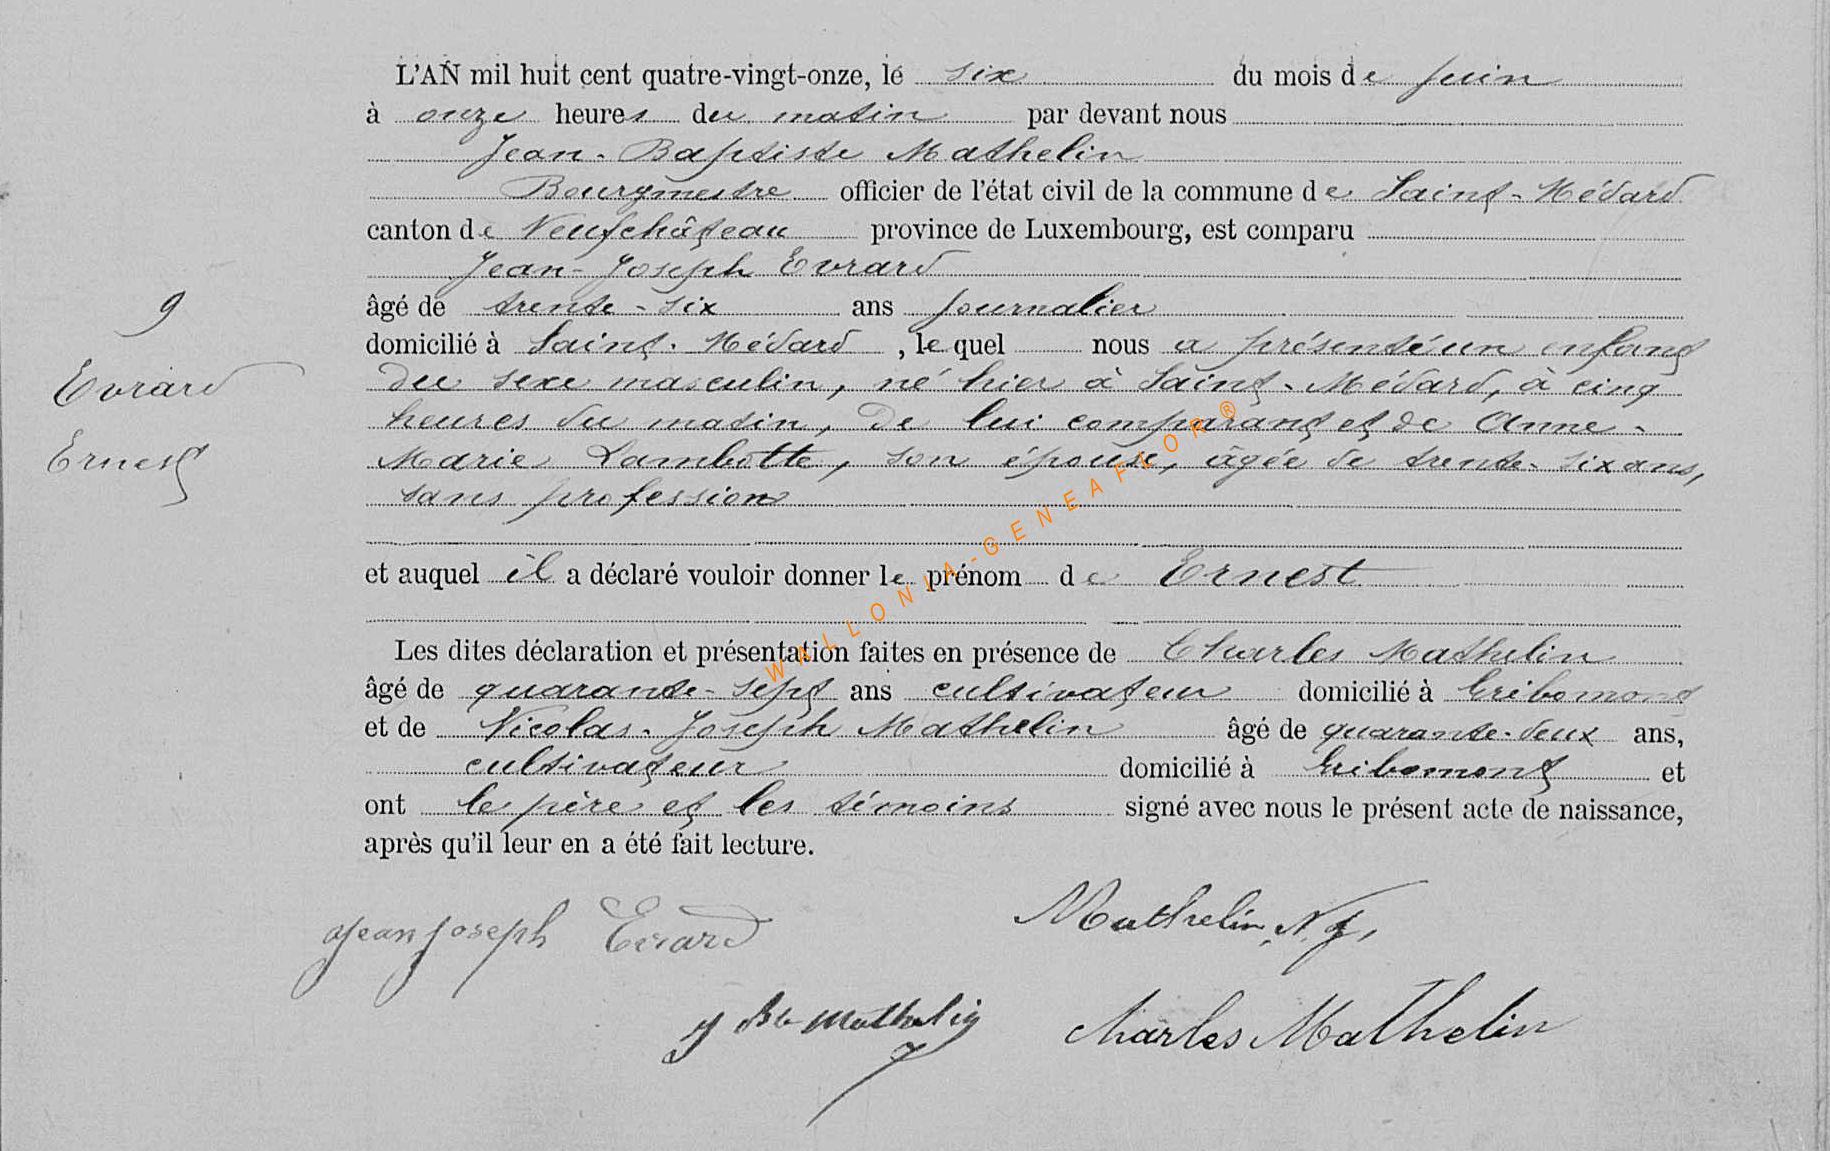 L'AN mil huit cent quatre-vingt-onze, le six du mois de juin
à onze heures du matin par devant nous
Jean-Baptiste Mathelin
Bourgmestre officier de l'état civil de la commune de Saint-Médard
canton de Neufchâteau province de Luxembourg, est comparu
Jean-Joseph Evrard
9
âgé de trente-six ans journalier
domicilié à Saint-Médard, lequel nous a présenté un enfant
Evrard
du sexe masculin, né hier à Saint-Médard, à cinq
heures du matin, de lui comparant et de Anne-
Ernest
Marie Lambotte, son épouse, âgée de trente-six ans,
sans profession
et auquel il a déclaré vouloir donner le prénom de Ernest
WALLONIA-GENEAFLOR®
Les dites déclaration et présentation faites en présence de Charles Mathelin
âgé de quarante-sept ans cultivateur domicilié à Gribomont
et de Nicolas-Joseph Mathelin âgé de quarante-deux ans,
cultivateur domicilié à Gribomont et
ont le père et les témoins signé avec nous le présent acte de naissance,
après qu'il leur en a été fait lecture.
Jean Joseph Evrard
Mathelin, N. J.
J Bte Mathelin
Charles Mathelin